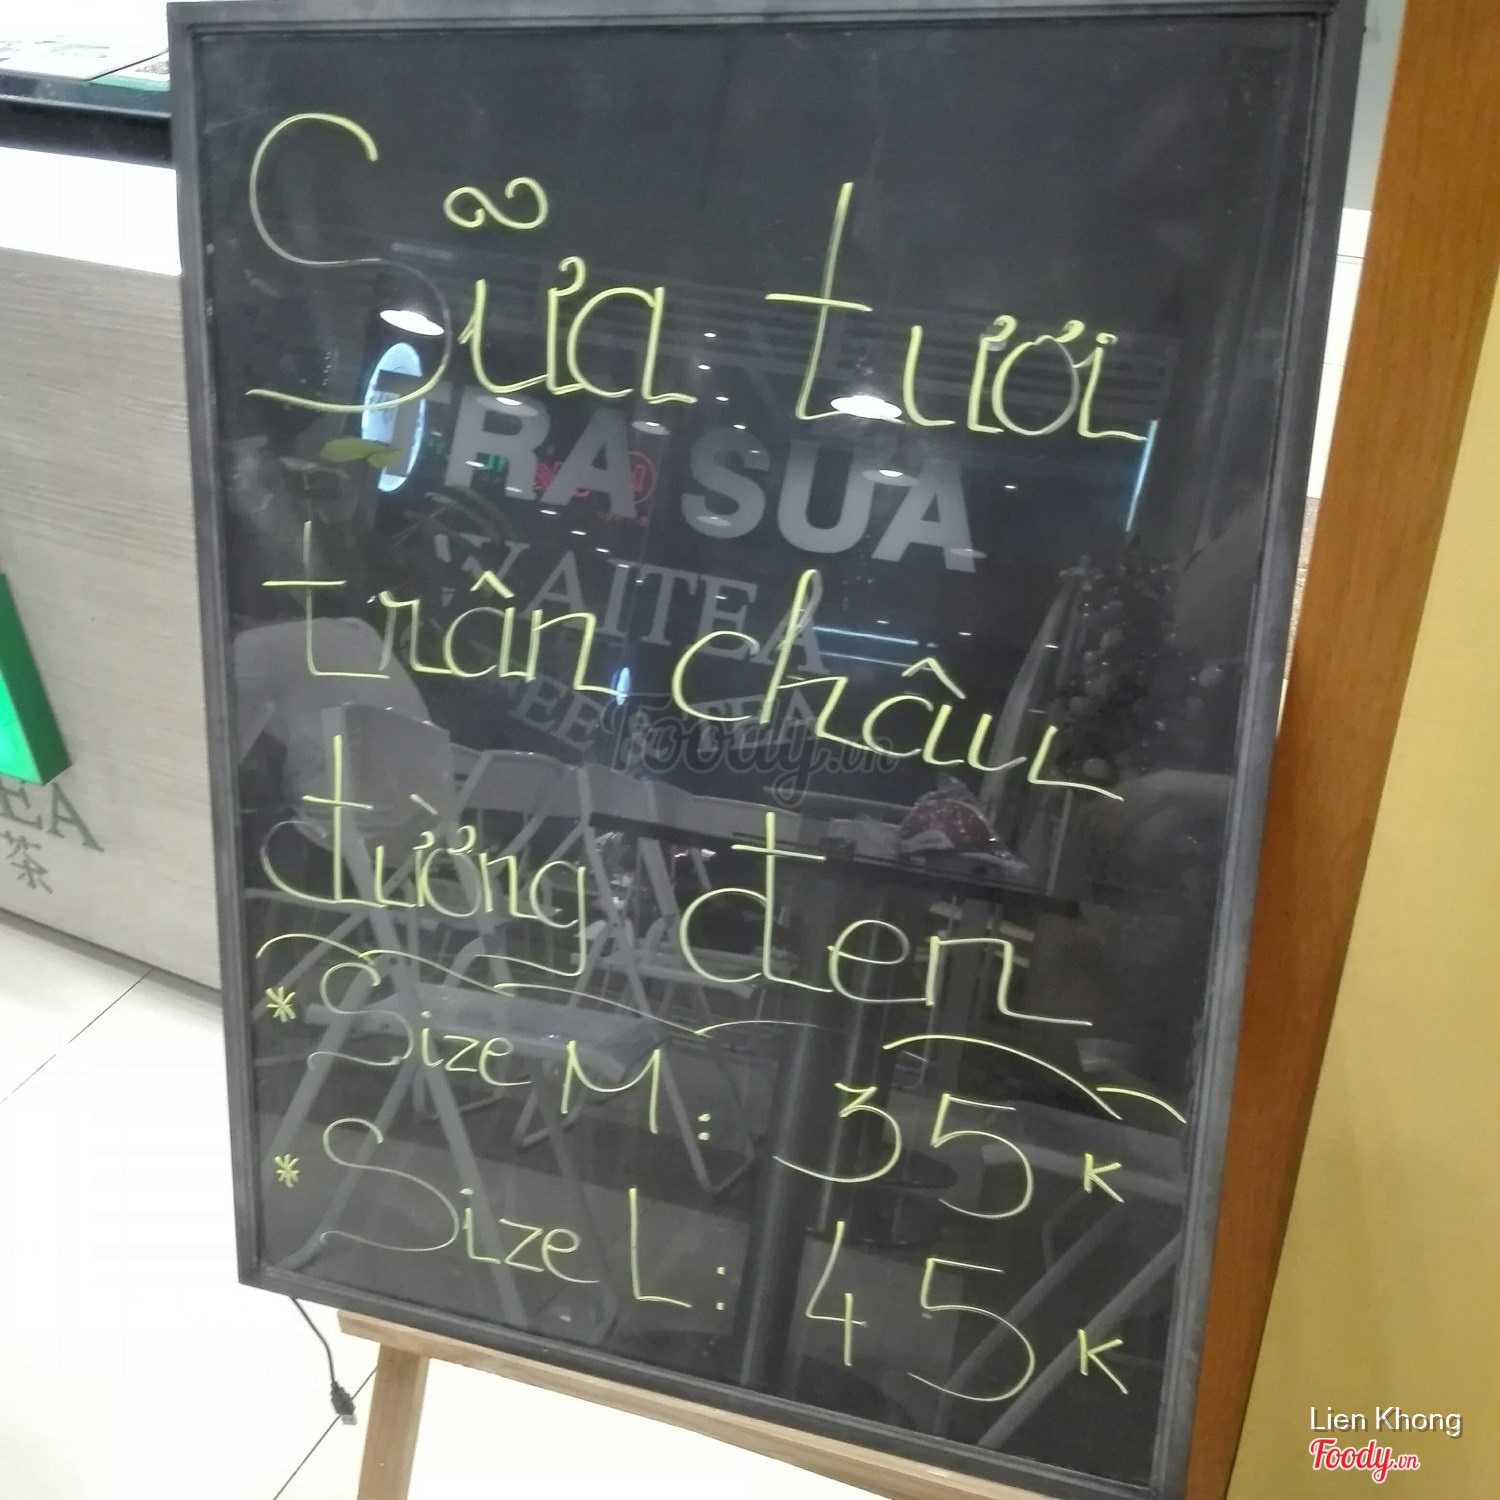 Sữa tươi
TRÀ SỮA
WAITEA
trân châu
Foody.vn
đường đen
* Size M: 35K
* Size L: 45K
EA
茶
Lien Khong
Foody.vn